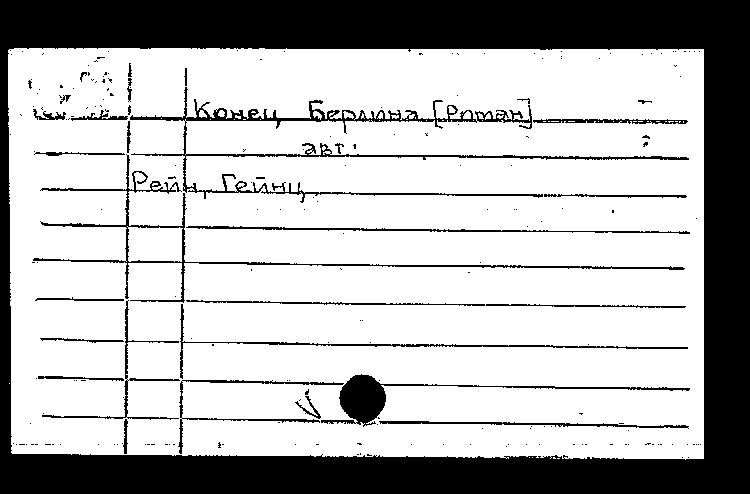 Конец Берлина [Роман]
авт.:
Рейн, Гейнц.